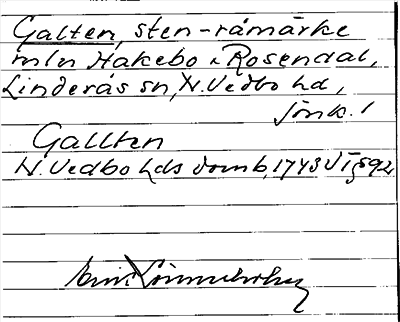 Galten, sten-råmärke
mln Hakebo o Rosendal,
Linderås sn, N. Vedbo hd,
Jönk. l
Gallten
N. Vedbo hds domb, 1743 VT § 92